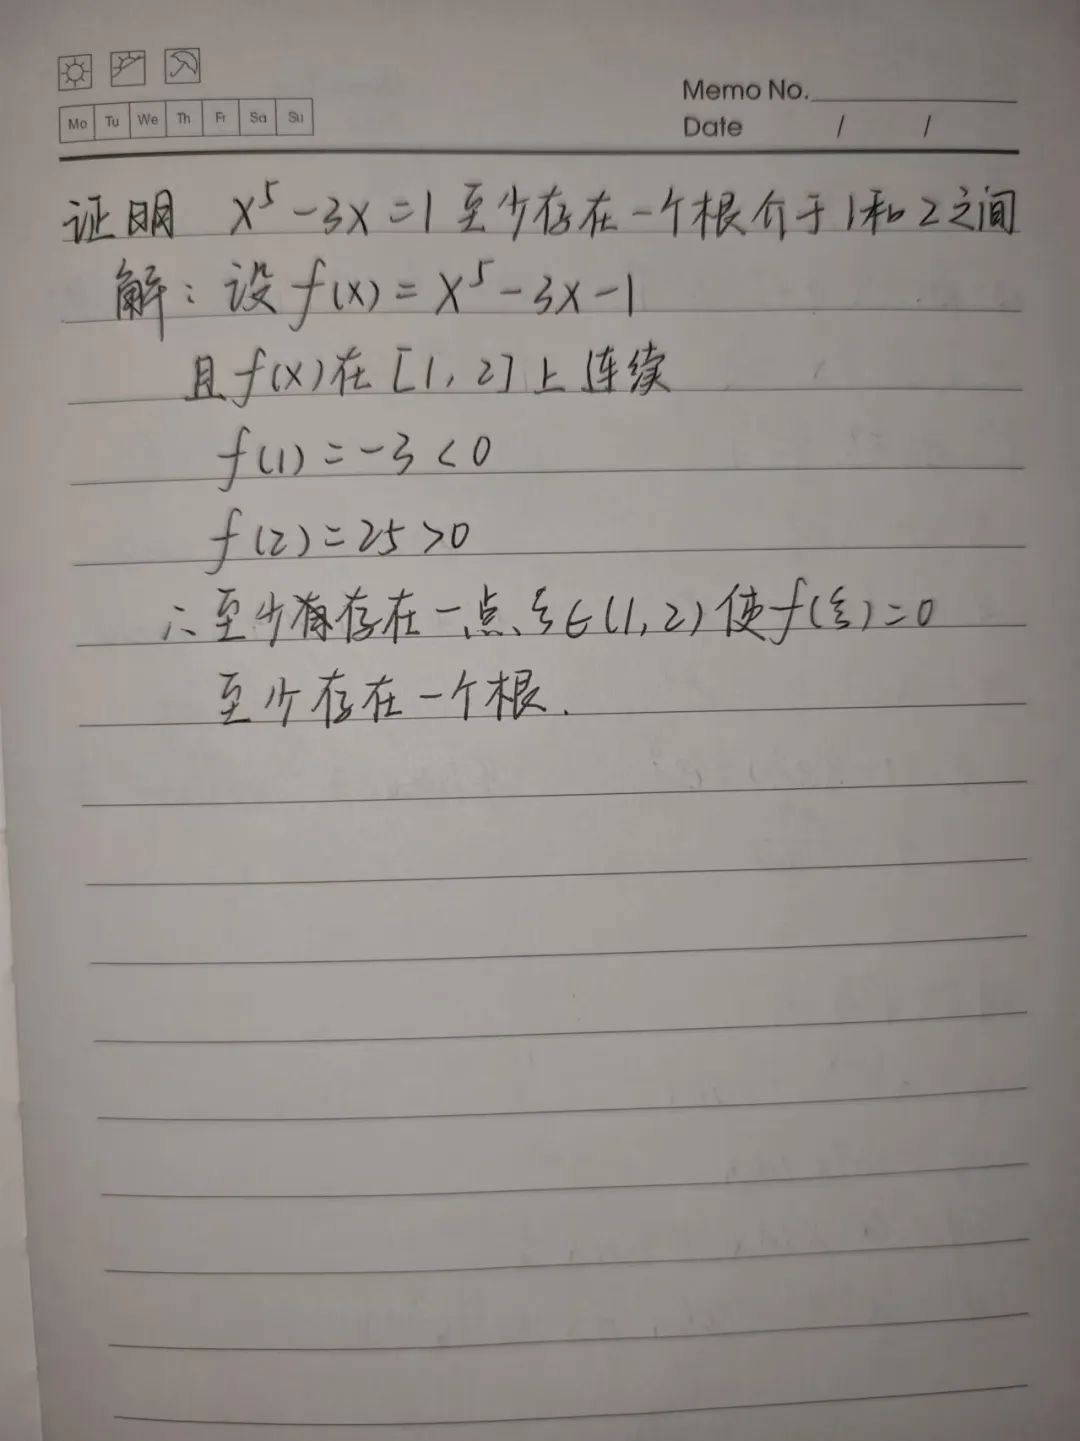 Memo No.
Mo Tu We Th Fr Sa Su
Date / /
证明 x⁵-3x=1至少存在一个根介于1和2之间
解：设f(x)=x⁵-3x-1
且f(x)在[1,2]上连续
f(1)=-3<0
f(2)=25>0
∴至少存在一点ξ∈(1,2)使f(ξ)=0
至少存在一个根.